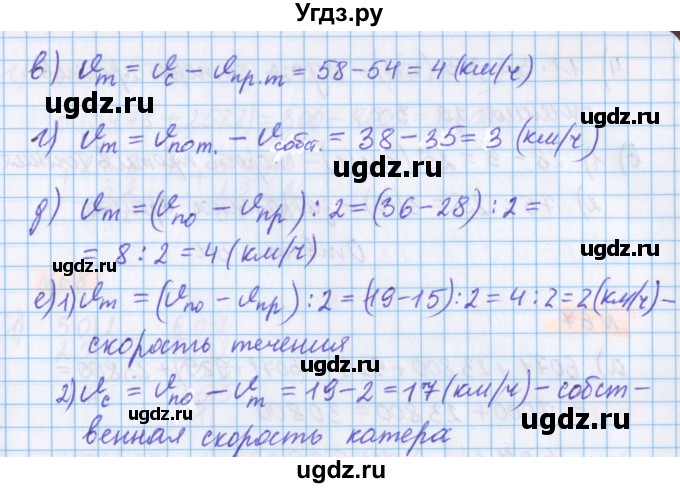 Угдз.ру
в) vт = vс − vпр.т = 58−54 = 4 (км/ч)
ugdz.ru
ugdz.ru
г) vт = vпот. − vсобст. = 38−35 = 3 (км/ч)
ugdz.ru
д) vт = (vпо − vпр) : 2 = (36−28) : 2 =
ugdz.ru
= 8 : 2 = 4 (км/ч)
ugdz.ru
ugdz.ru
е) 1) vт = (vпо − vпр) : 2 = (19−15) : 2 = 4 : 2 = 2 (км/ч) −
скорость течения
ugdz.ru
2) vс = vпо − vт = 19−2 = 17 (км/ч) − собст −
ugdz.ru
венная скорость катера
ugdz.ru
ugdz.ru